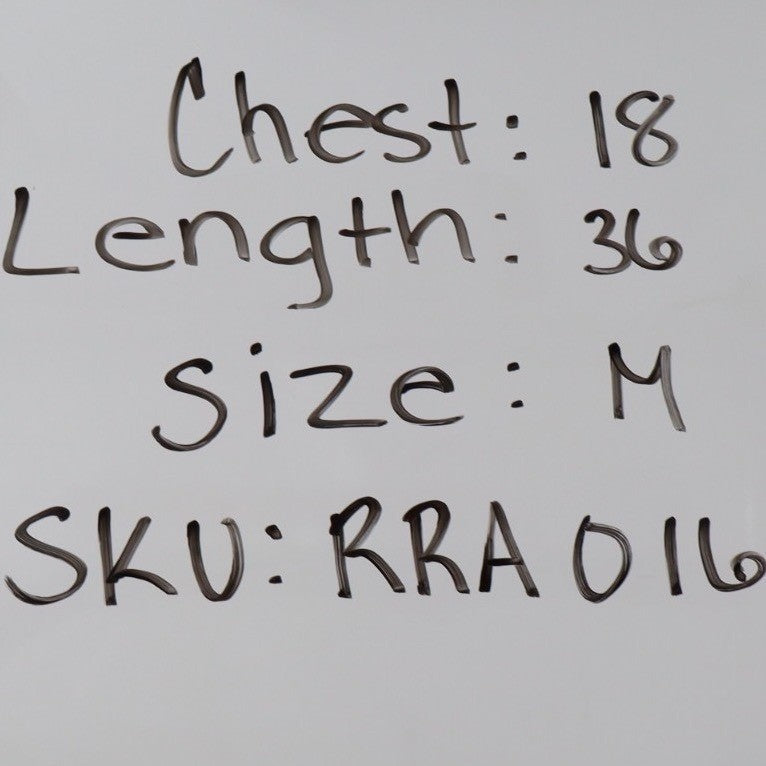 Chest: 18
Length: 36
Size: M
SKU: RRA016